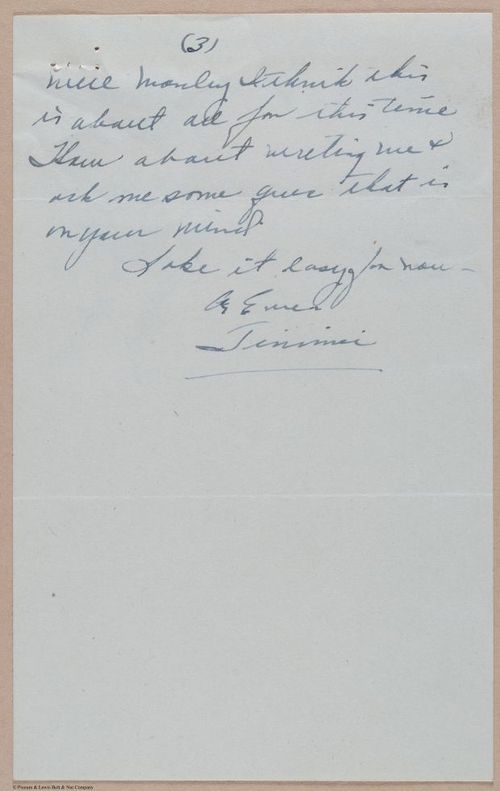 (3)
well Manley I think this
is about all for this time
How about writing me &
ask me some ques that is
on your mind
Take it easy for now -
As Ever
Jimmie
© Pioneer & Lewis Bolt & Nut Company